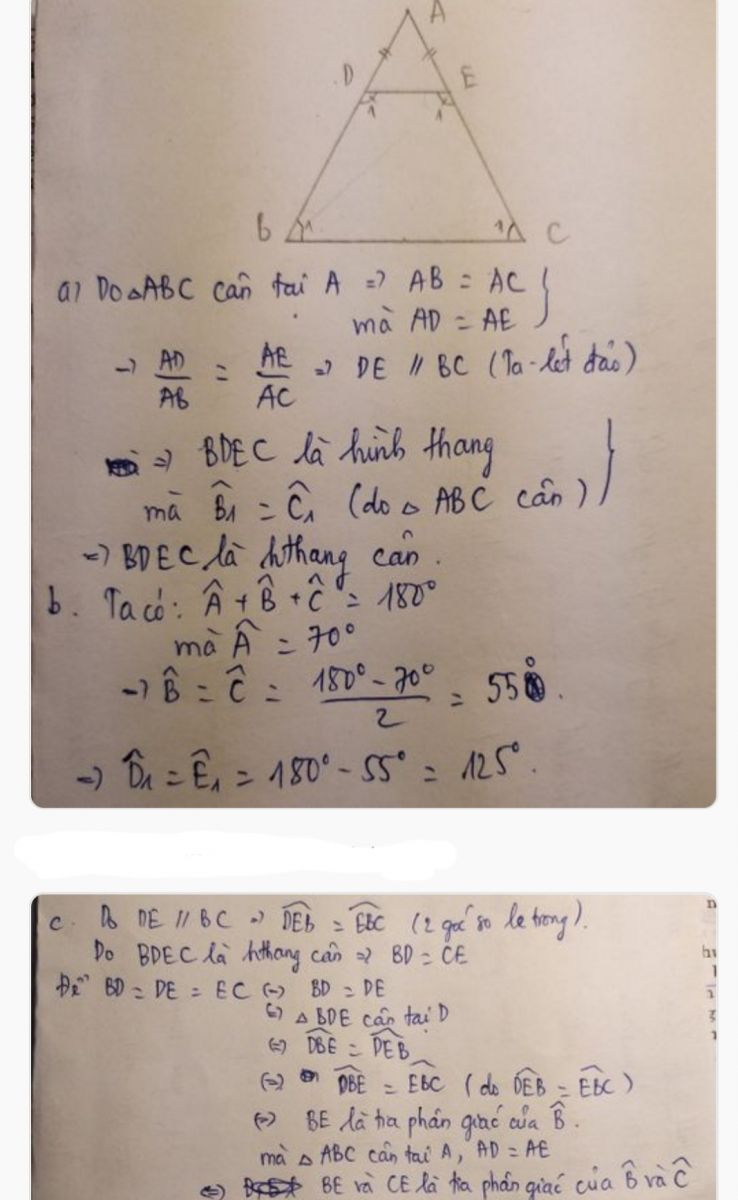 A
D E
1 1
B 1 1 C
a) Do △ABC cân tại A => AB = AC }
mà AD = AE
=> AD/AB = AE/AC => DE // BC (Ta-lét đảo)
=> BDEC là hình thang }
mà B̂₁ = Ĉ₁ (do △ ABC cân)
=> BDEC là hthang cân.
b. Ta có: Â + B̂ + Ĉ = 180°
mà Â = 70°
=> B̂ = Ĉ = (180° - 70°)/2 = 55°.
=> D̂₁ = Ê₁ = 180° - 55° = 125°.
c. Do DE // BC => D͡EB = E͡BC (2 góc so le trong).
Do BDEC là hthang cân => BD = CE
Để BD = DE = EC <=> BD = DE
<=> △ BDE cân tại D
<=> D͡BE = D͡EB
<=> D͡BE = E͡BC (do D͡EB = E͡BC)
<=> BE là tia phân giác của B̂.
mà △ ABC cân tại A, AD = AE
<=> BE và CE là tia phân giác của B̂ và Ĉ